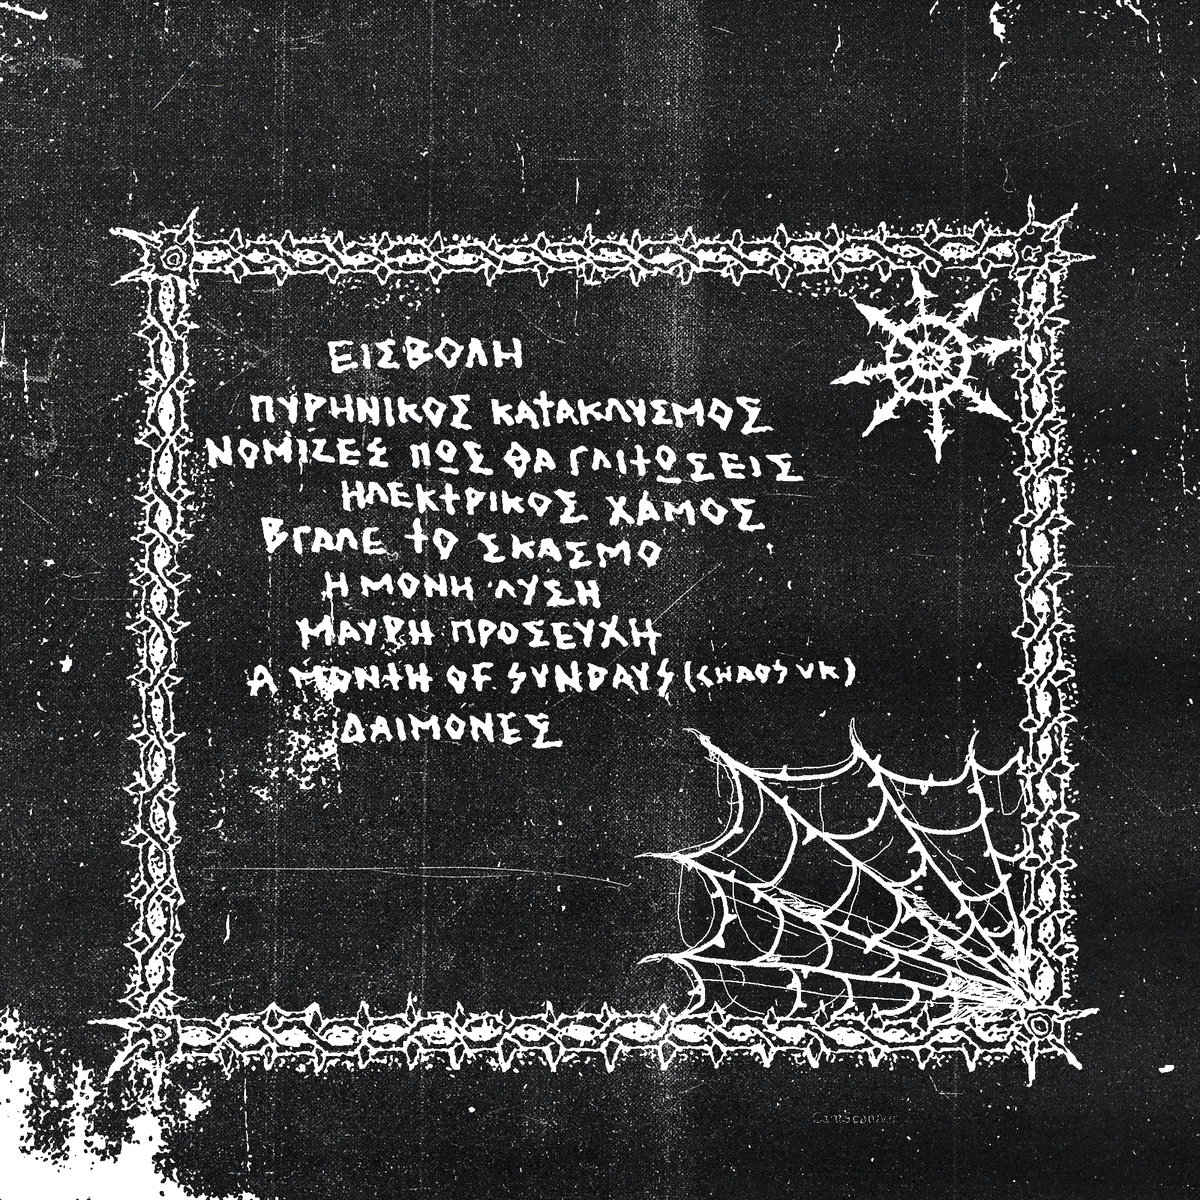 ΕΙΣΒΟΛΗ
ΠΥΡΗΝΙΚΟΣ ΚΑΤΑΚΛΥΣΜΟΣ
ΝΟΜΙΖΕΣ ΠΩΣ ΘΑ ΓΛΙΤΩΣΕΙΣ
ΗΛΕΚΤΡΙΚΟΣ ΧΑΜΟΣ
ΒΓΑΛΕ ΤΟ ΣΚΑΣΜΟ
Η ΜΟΝΗ ΛΥΣΗ
ΜΑΥΡΗ ΠΡΟΣΕΥΧΗ
A MONTH OF SUNDAYS (CHAOS UK)
ΔΑΙΜΟΝΕΣ
CamScanner